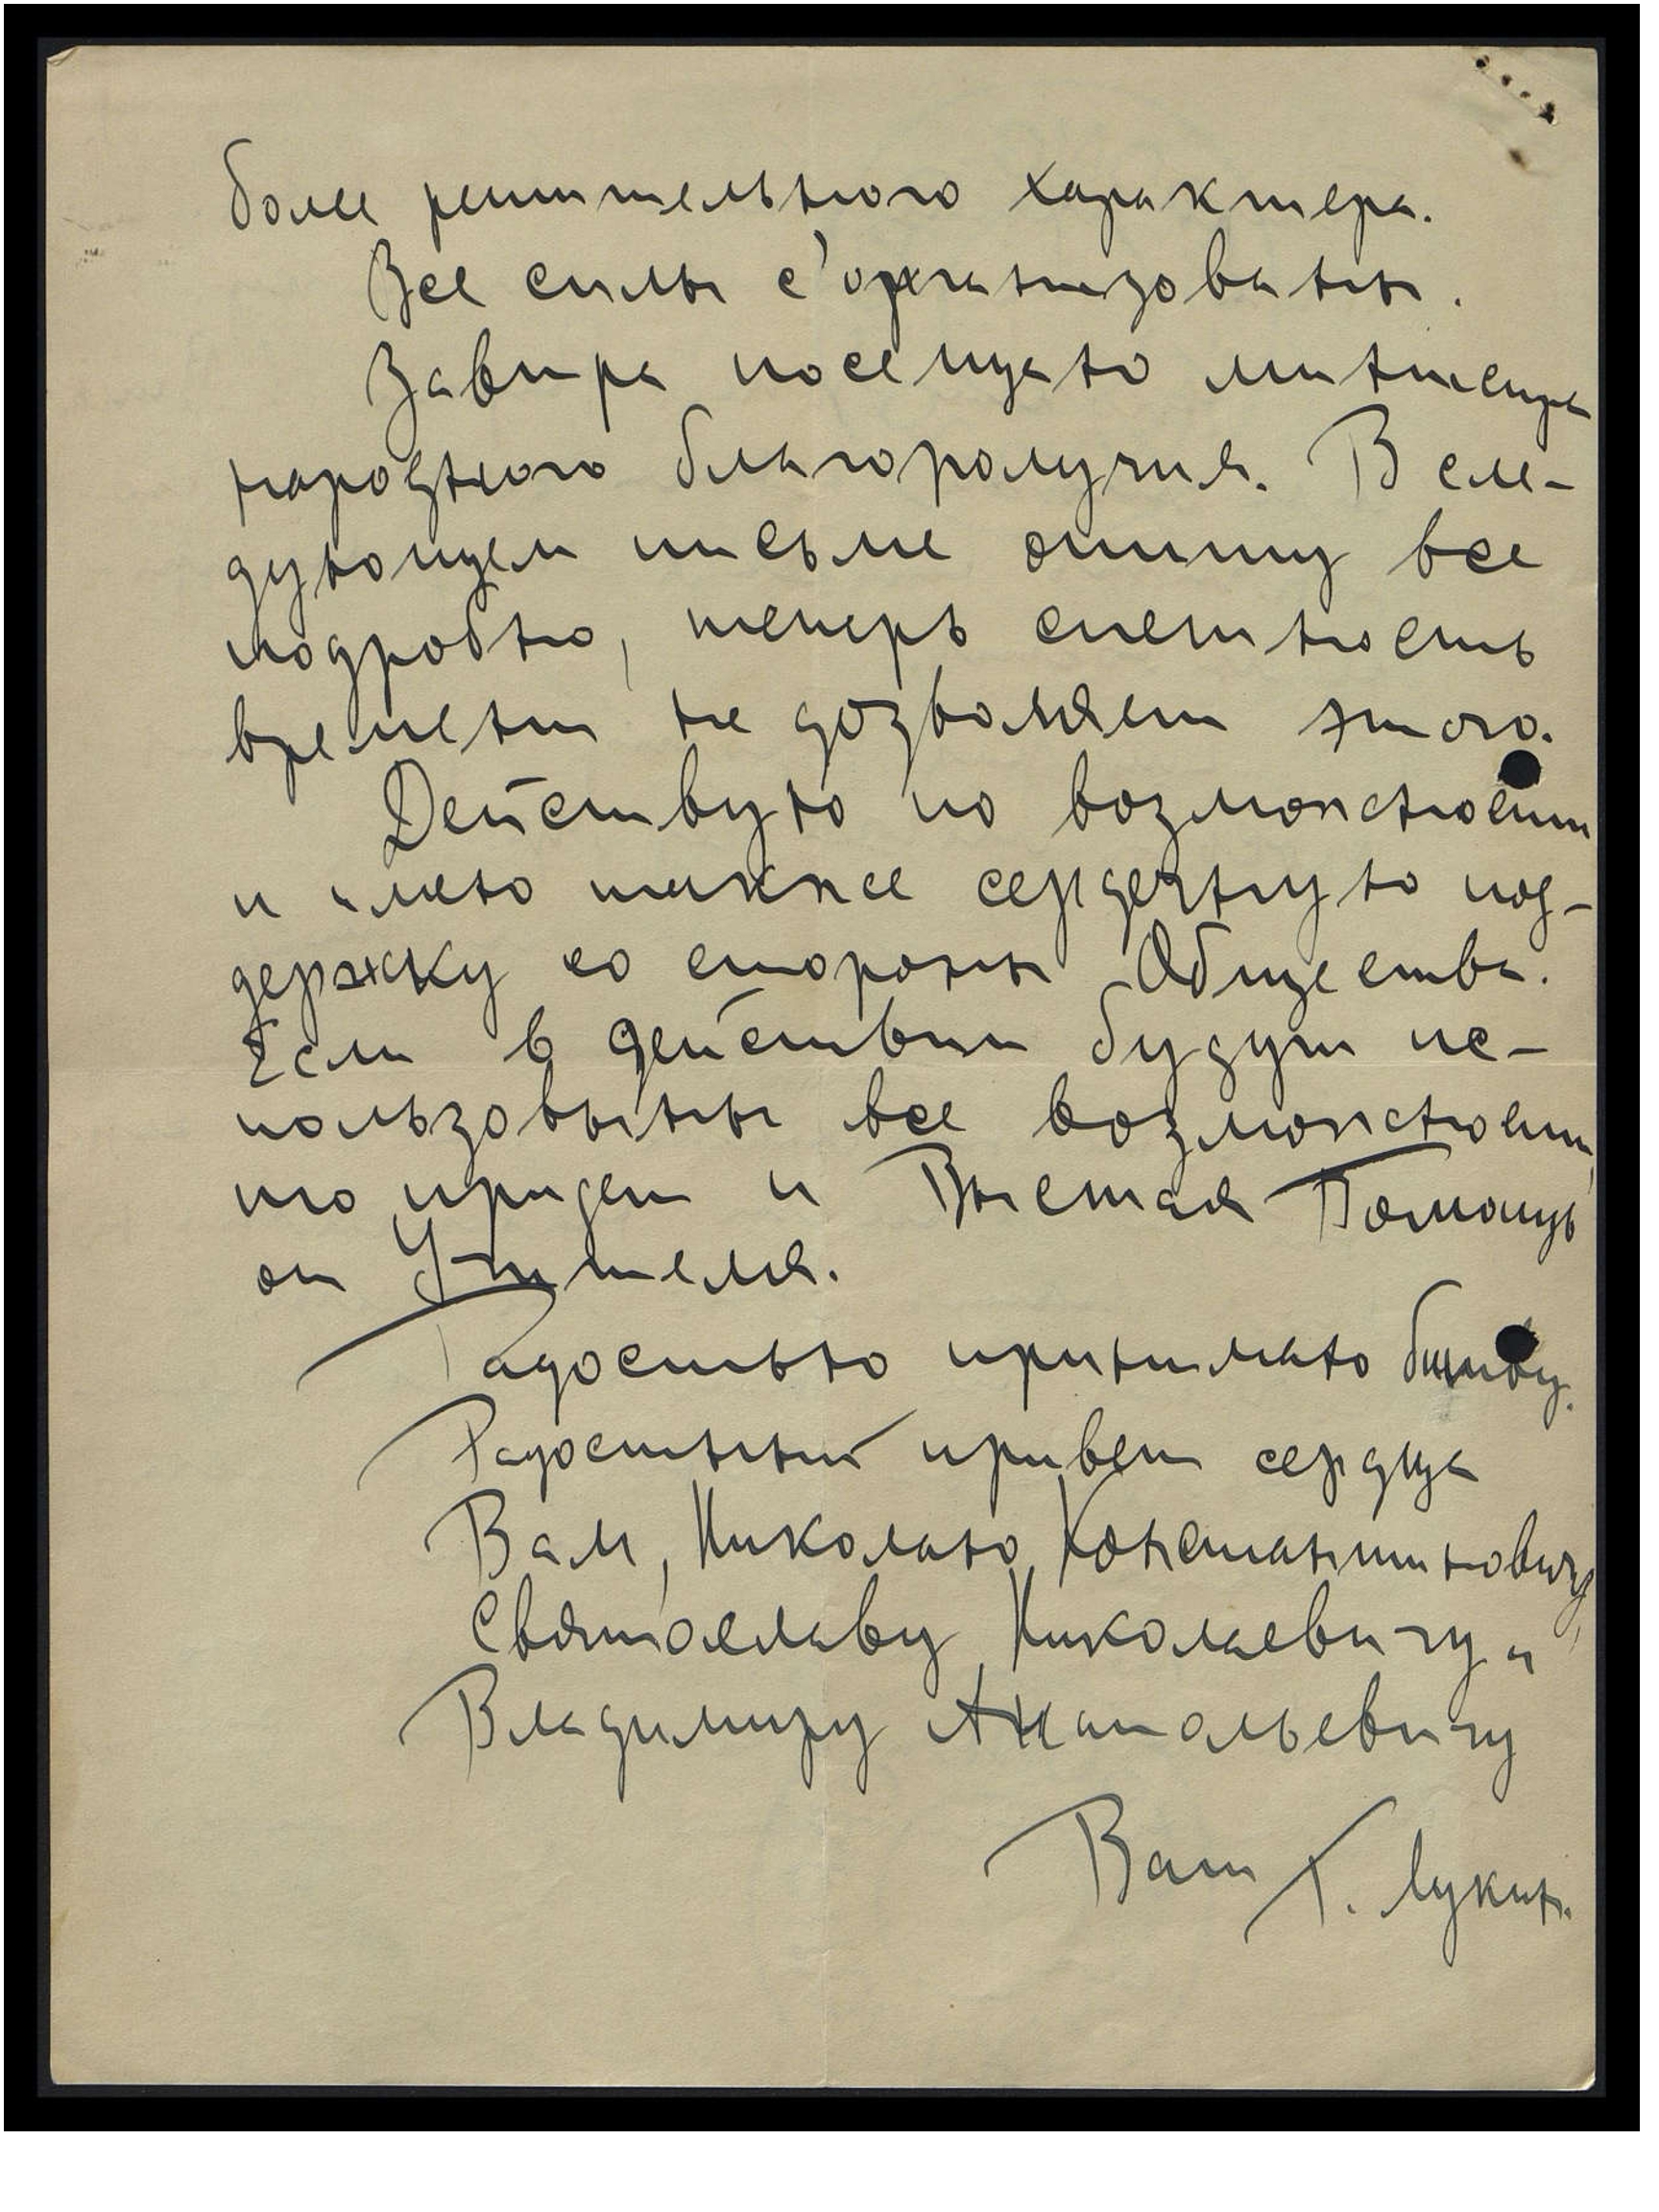 более решительного характера.
Все силы с'организованы.
Завтра посещаю министра
народного благополучия. В сле-
дующем письме опишу все
подробно, теперь спешность
времени не дозволяет этого.
Действую по возможности
и имею также сердечную под-
держку со стороны Общества.
Если в действии будут ис-
пользованы все возможности,
то придет и Высшая Помощь
от Учителя.
Радостью принимаю битву.
Радостный привет сердца
Вам, Николаю Константиновичу,
Святославу Николаевичу и
Владимиру Анатольевичу
Ваш Г. Лукин.